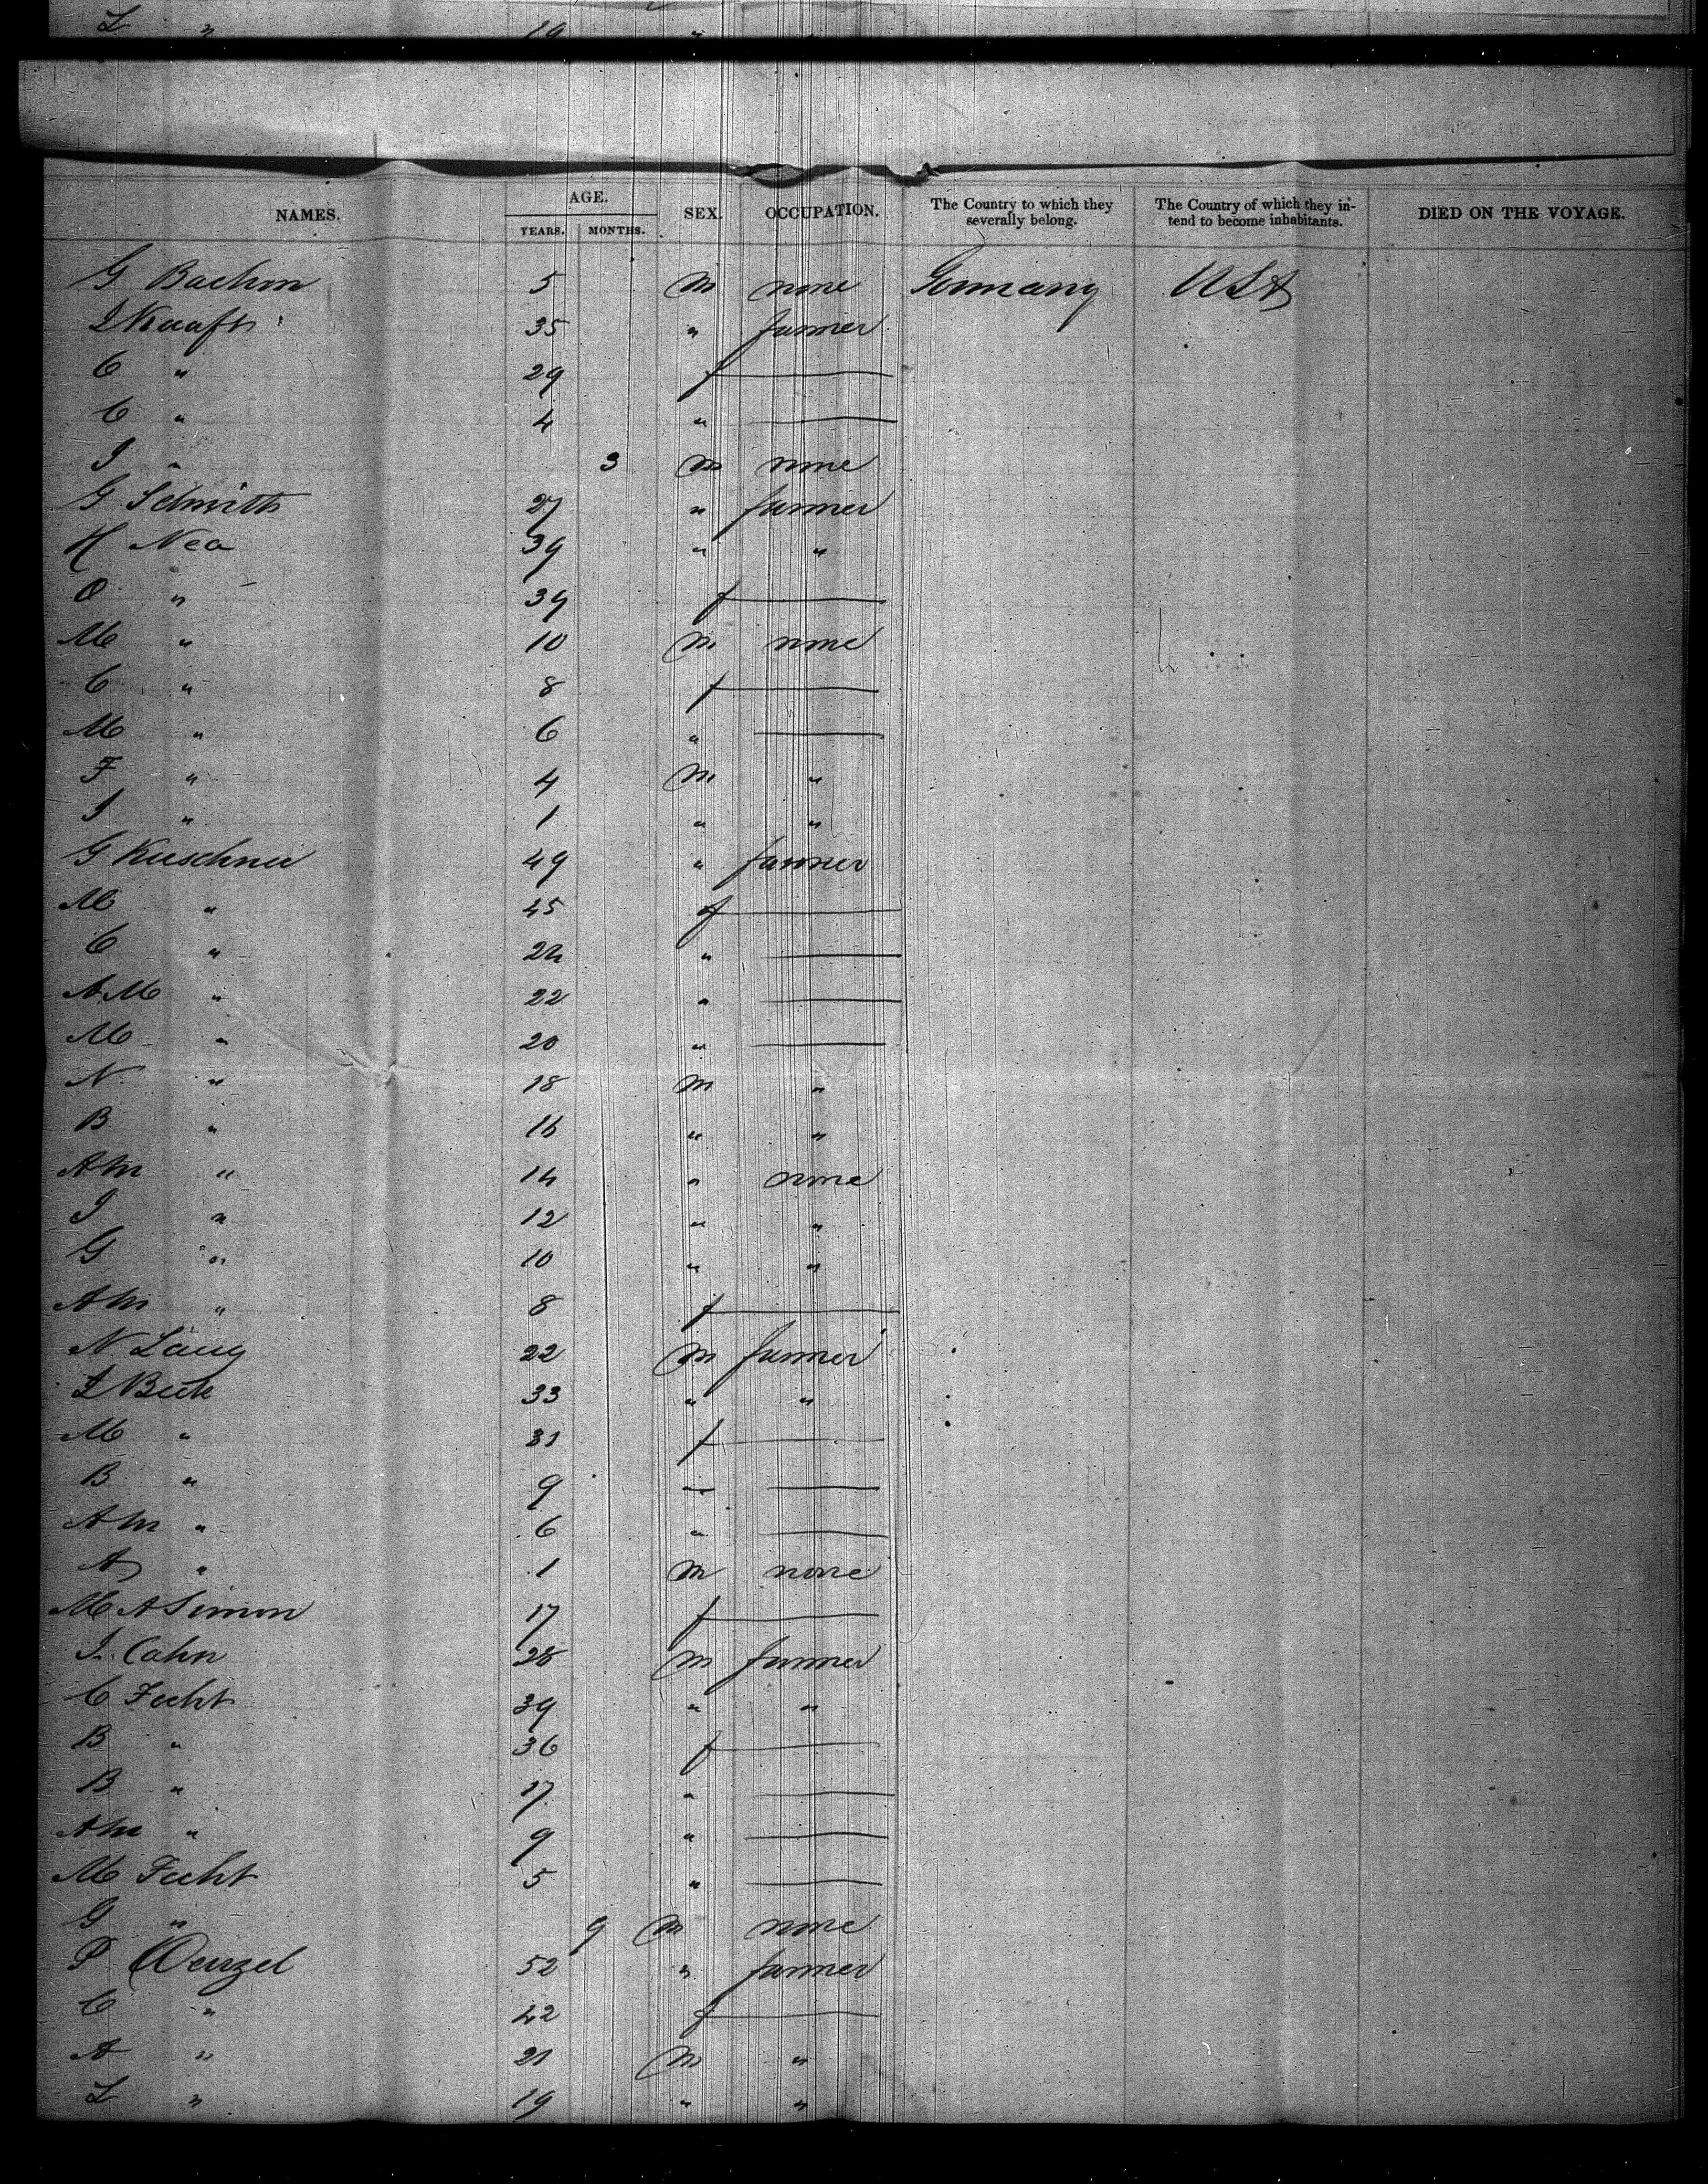 L " 19 "
NAMES. AGE. SEX. OCCUPATION. The Country to which they severally belong. The Country of which they intend to become inhabitants. DIED ON THE VOYAGE.
YEARS. MONTHS.
G Bachm 5 m none Germany USA
I Kraft 35 " farmer
C " 29 f —
C " 4 " —
J " 3 m none
G Schmitt 27 " farmer
H Nea 39 " "
O " 39 f —
M " 10 m none
C " 8 f —
M " 6 " —
F " 4 m "
J " 1 " "
G Kirschner 49 " farmer
M " 45 f —
C " 24 " —
A M " 22 " —
M " 20 " —
N " 18 m "
B " 16 " "
A M " 14 " none
J " 12 " "
G " 10 " "
A M " 8 f —
N Lang 22 m farmer
I Beck 33 " "
M " 31 f —
B " 9 — —
A M " 6 " —
A " 1 m none
M A Simon 17 f —
I. Cahn 28 m farmer
C Fecht 39 " "
B " 36 f —
B " 17 " —
A M " 9 " —
M Fecht 5 " —
G " 9 m none
P Wenzel 52 " farmer
C " 42 f —
A " 21 m "
L " 19 " "